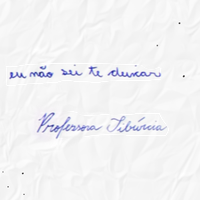 eu não sei te deixar
Professora Tibúrcia